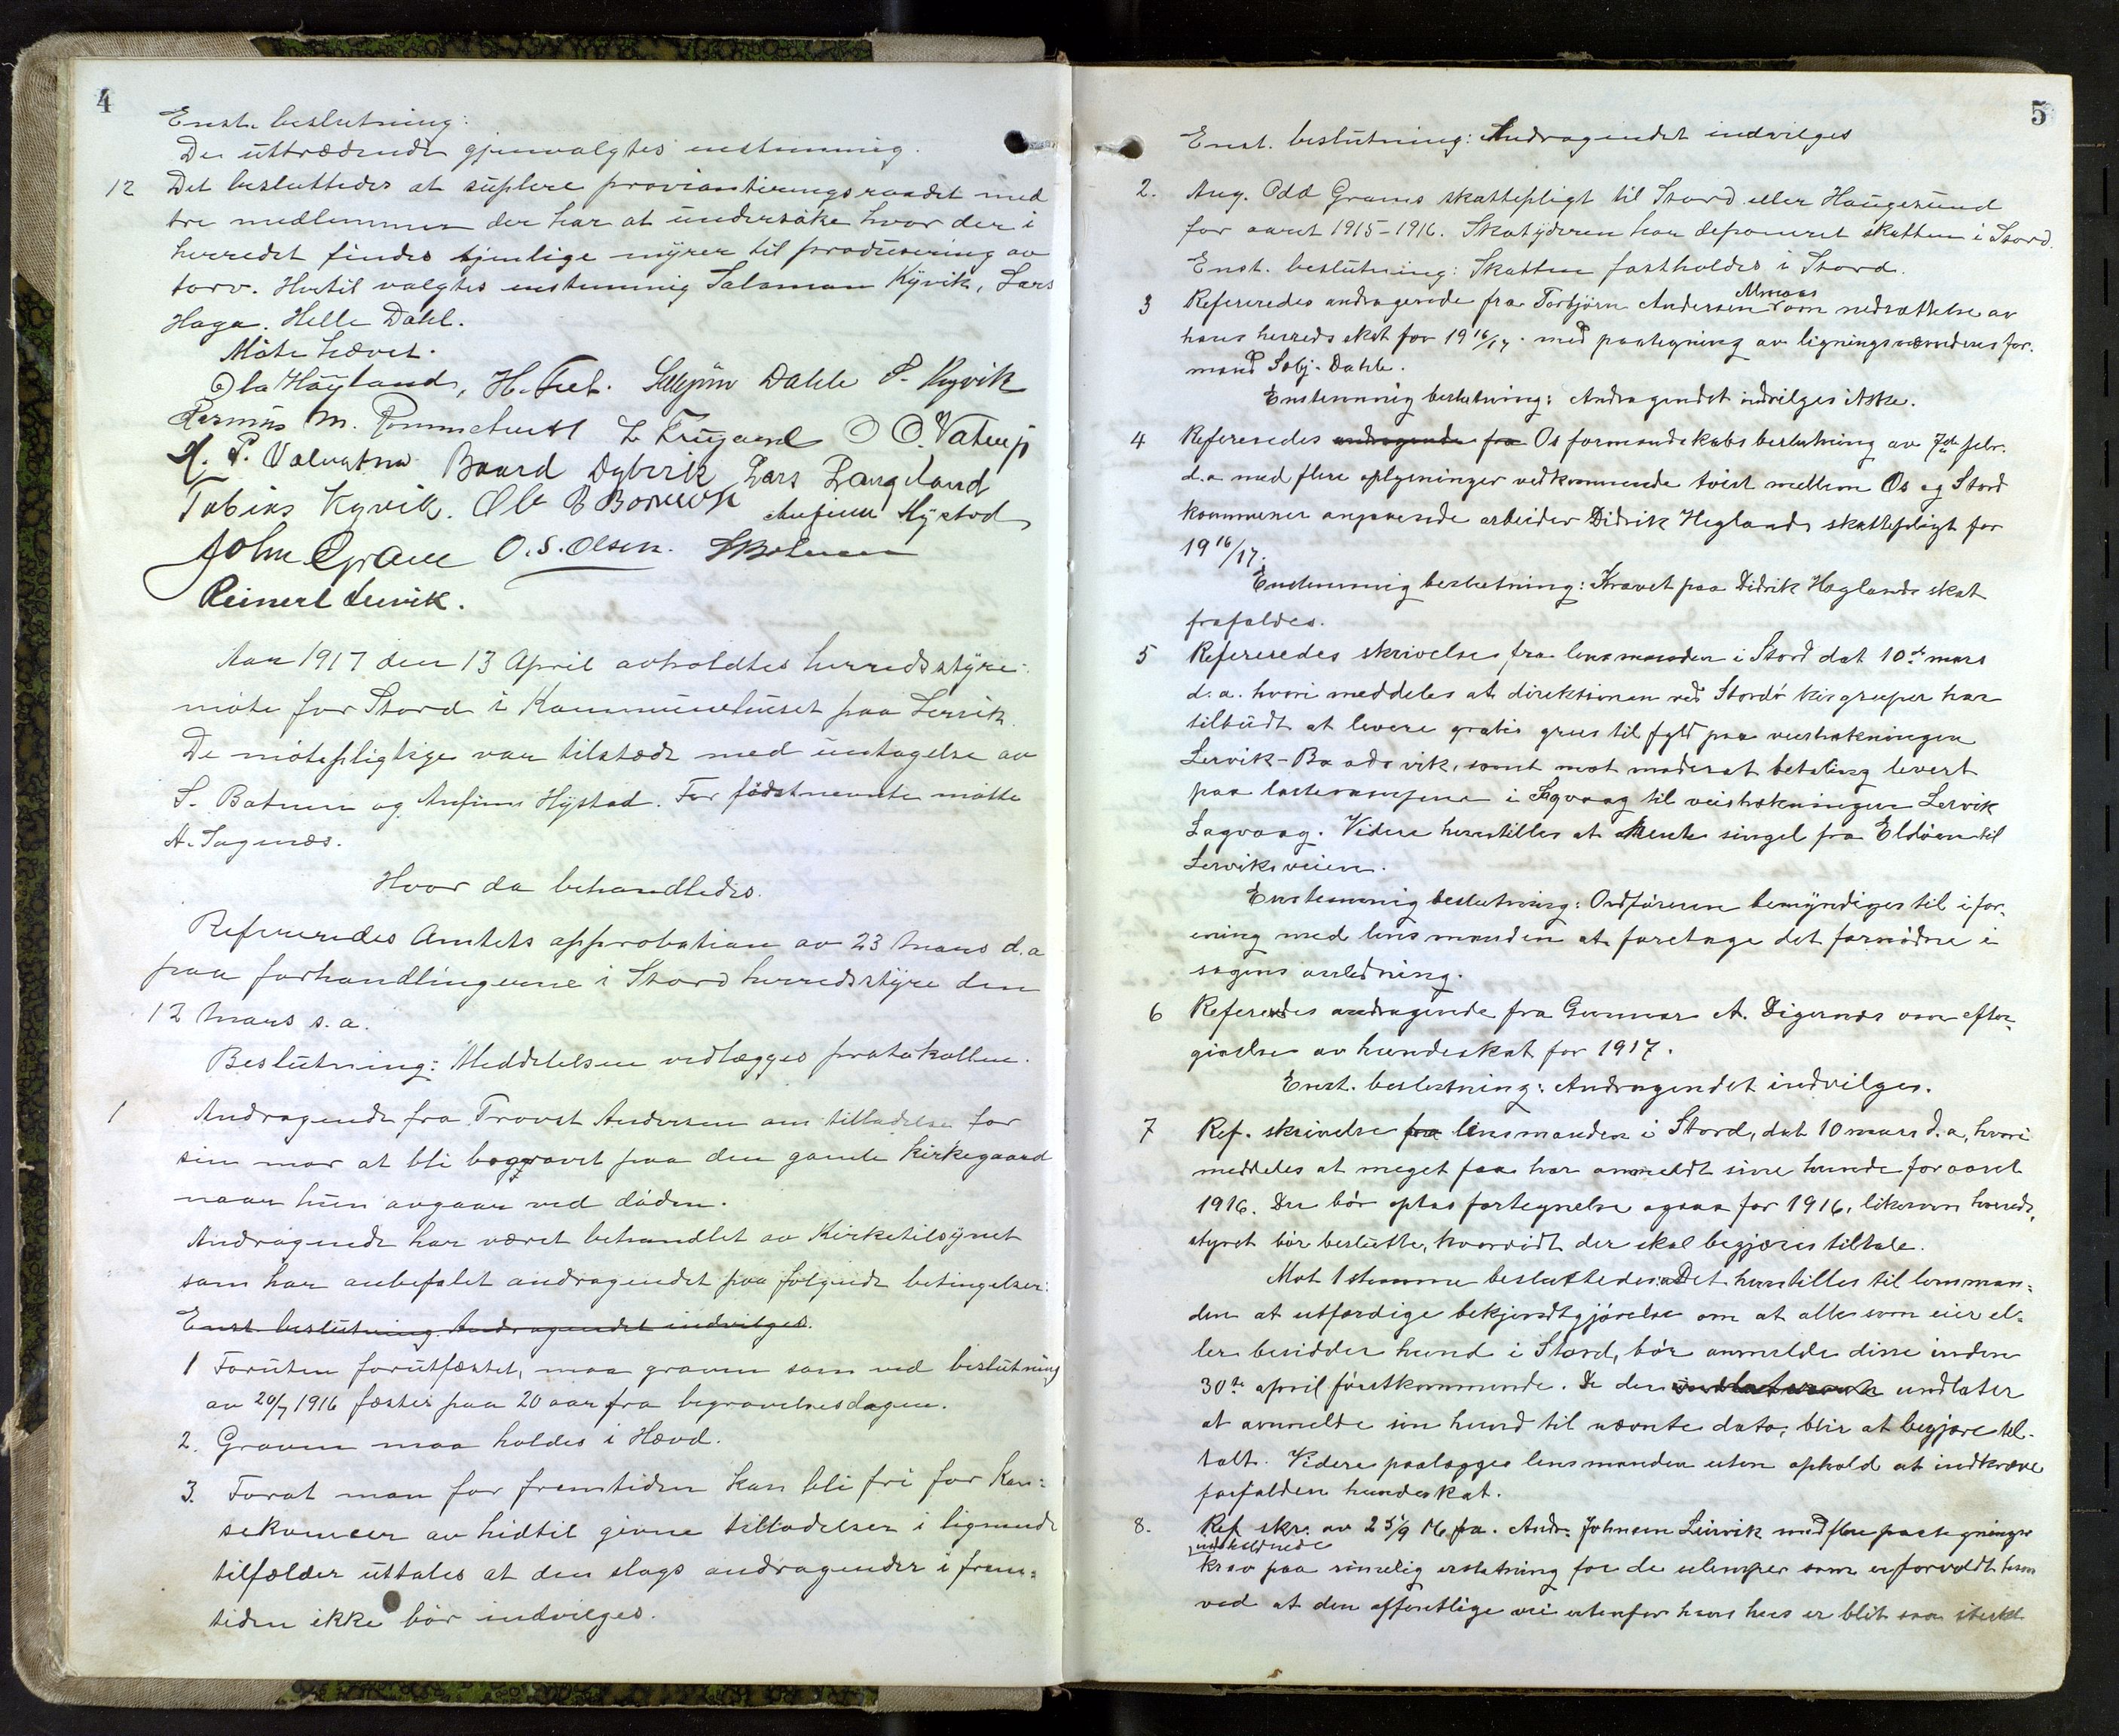 4
Enst. beslutning:
De uttrædende gjenvalgtes enstemmig.
12 Det besluttedes at suplere provianteringsraadet med
tre medlemmer der har at undersøke hvor der i
herredet findes tjenlige myrer til produsering av
torv. Hertil valgtes enstemmig Salamon Kyvik, Lars
Haga. Helle Dahl.
Møte hævet.
Ola Høyland, H. Dahle S. Kyvik
Rasmus M. O. O. Vatnaa
Baard Dybvik Lars Langeland
Tobias Kyvik. Ole B Anfinn Hystad
John Gram O. S. Olsen.
Reinert Leirvik.
Aar 1917 den 13 April avholdtes herredsstyre-
møte for Stord i Kommunehuset paa Lervik.
De møtepligtige var tilstæde med untagelse av
S. Batnun og Anfinn Hystad. For førstnevnte møtte
A. Sagnæs.
Hvor da behandledes.
Refereredes Amtets approbation av 23 Mars d.a
paa forhandlingerne i Stord herredsstyre den
12 Mars s.a.
Beslutning: Meddelelsen vedlægges protokollen.
1 Andragende fra Provst Andersen om tilladelse for
sin mor at bli begravet paa den gamle Kirkegaard
naar hun avgaar ved døden.
Andragende har været behandlet av Kirketilsynet
som har anbefalet andragendet paa følgende betingelser:
Enst. beslutning. Andragendet indvilges.
1 Foruten forutfæstet, maa graven som ved beslutning
av 20/7 1916 fæstes paa 20 aar fra begravelsesdagen.
2. Graven maa holdes i Hævd.
3. Forat man for fremtiden kan bli fri for kon-
sekvenser av hidtil givne tilladelser i lignende
tilfælder uttales at den slags andragender i frem-
tiden ikke bør indvilges.
5
Enst. beslutning: Andragendet indvilges
2. Ang. Odd Grams skattepligt til Stord eller Haugesund
for aaret 1915-1916. Skatyderen har deponeret skatten i Stord.
Enst. beslutning: Skatten fastholdes i Stord.
3 Refereredes andragende fra Torbjørn Andersen Almaas om nedsættelse av
hans herredsskat for 1916/17. med paategning av ligningsnævndens for-
mand Sebj. Dahle.
Enstemmig beslutning: Andragendet indvilges ikke.
4 Refereredes andragende fra Os formandskabs beslutning av 7de febr.
d.a med flere oplysninger vedkommende tvist mellem Os og Stord
kommuner angaaende arbeider Didrik Heglands skattepligt for
1916/17.
Enstemmig beslutning: Kravet paa Didrik Heglands skat
frafaldes.
5 Refereredes skrivelse fra lensmanden i Stord dat 10de mars
d.a. hvori meddeles at direktionen ved Stordø kisgruper har
tilbudt at levere gratis grus til fyld paa veistrækningen
Lervik-Baadsvik, samt mot moderat betaling levert
paa lasterampene i Sagvaag til veistrækningen Lervik
Sagvaag. Videre henstilles at skerte singel fra Eldøen til
Lerviksveien.
Enstemmig beslutning: Ordføreren bemyndiges til i for-
ening med lensmanden at foretage det fornødne i
sagens anledning.
6 Refereredes andragende fra Gunnar A. Digernes om efter-
givelse av hundeskat for 1917.
Enst. beslutning: Andragendet indvilges.
7 Ref. skrivelse fra lensmanden i Stord, dat 10 mars d.a, hvori
meddeles at meget faa har anmeldt sine hunde for aaret
1916. Der bør optas fortegnelse ogsaa for 1916, likesom herreds-
styret bør beslutte, hvorvidt der skal begjæres tiltale.
Mot 1 stemme besluttedes: Det henstilles til lensman-
den at utfærdige bekjendtgjørelse om at alle som eier el-
ler besidder hund i Stord, bør anmelde disse inden
30te april førstkommende. De der undlater
at anmelde sin hund til nævnte dato, blir at begjære til-
talt. Videre paalægges lensmanden uten ophold at indkræve
forfalden hundeskat.
8. Ref. skr. av 25/9 16 fra. Andr. Johnsen Leirvik med flere paategninger
indeholdende
krav paa rimelig erstatning for de ulemper som er forvoldt ham
ved at den offentlige vei utenfor hans hus er blit saa sterkt